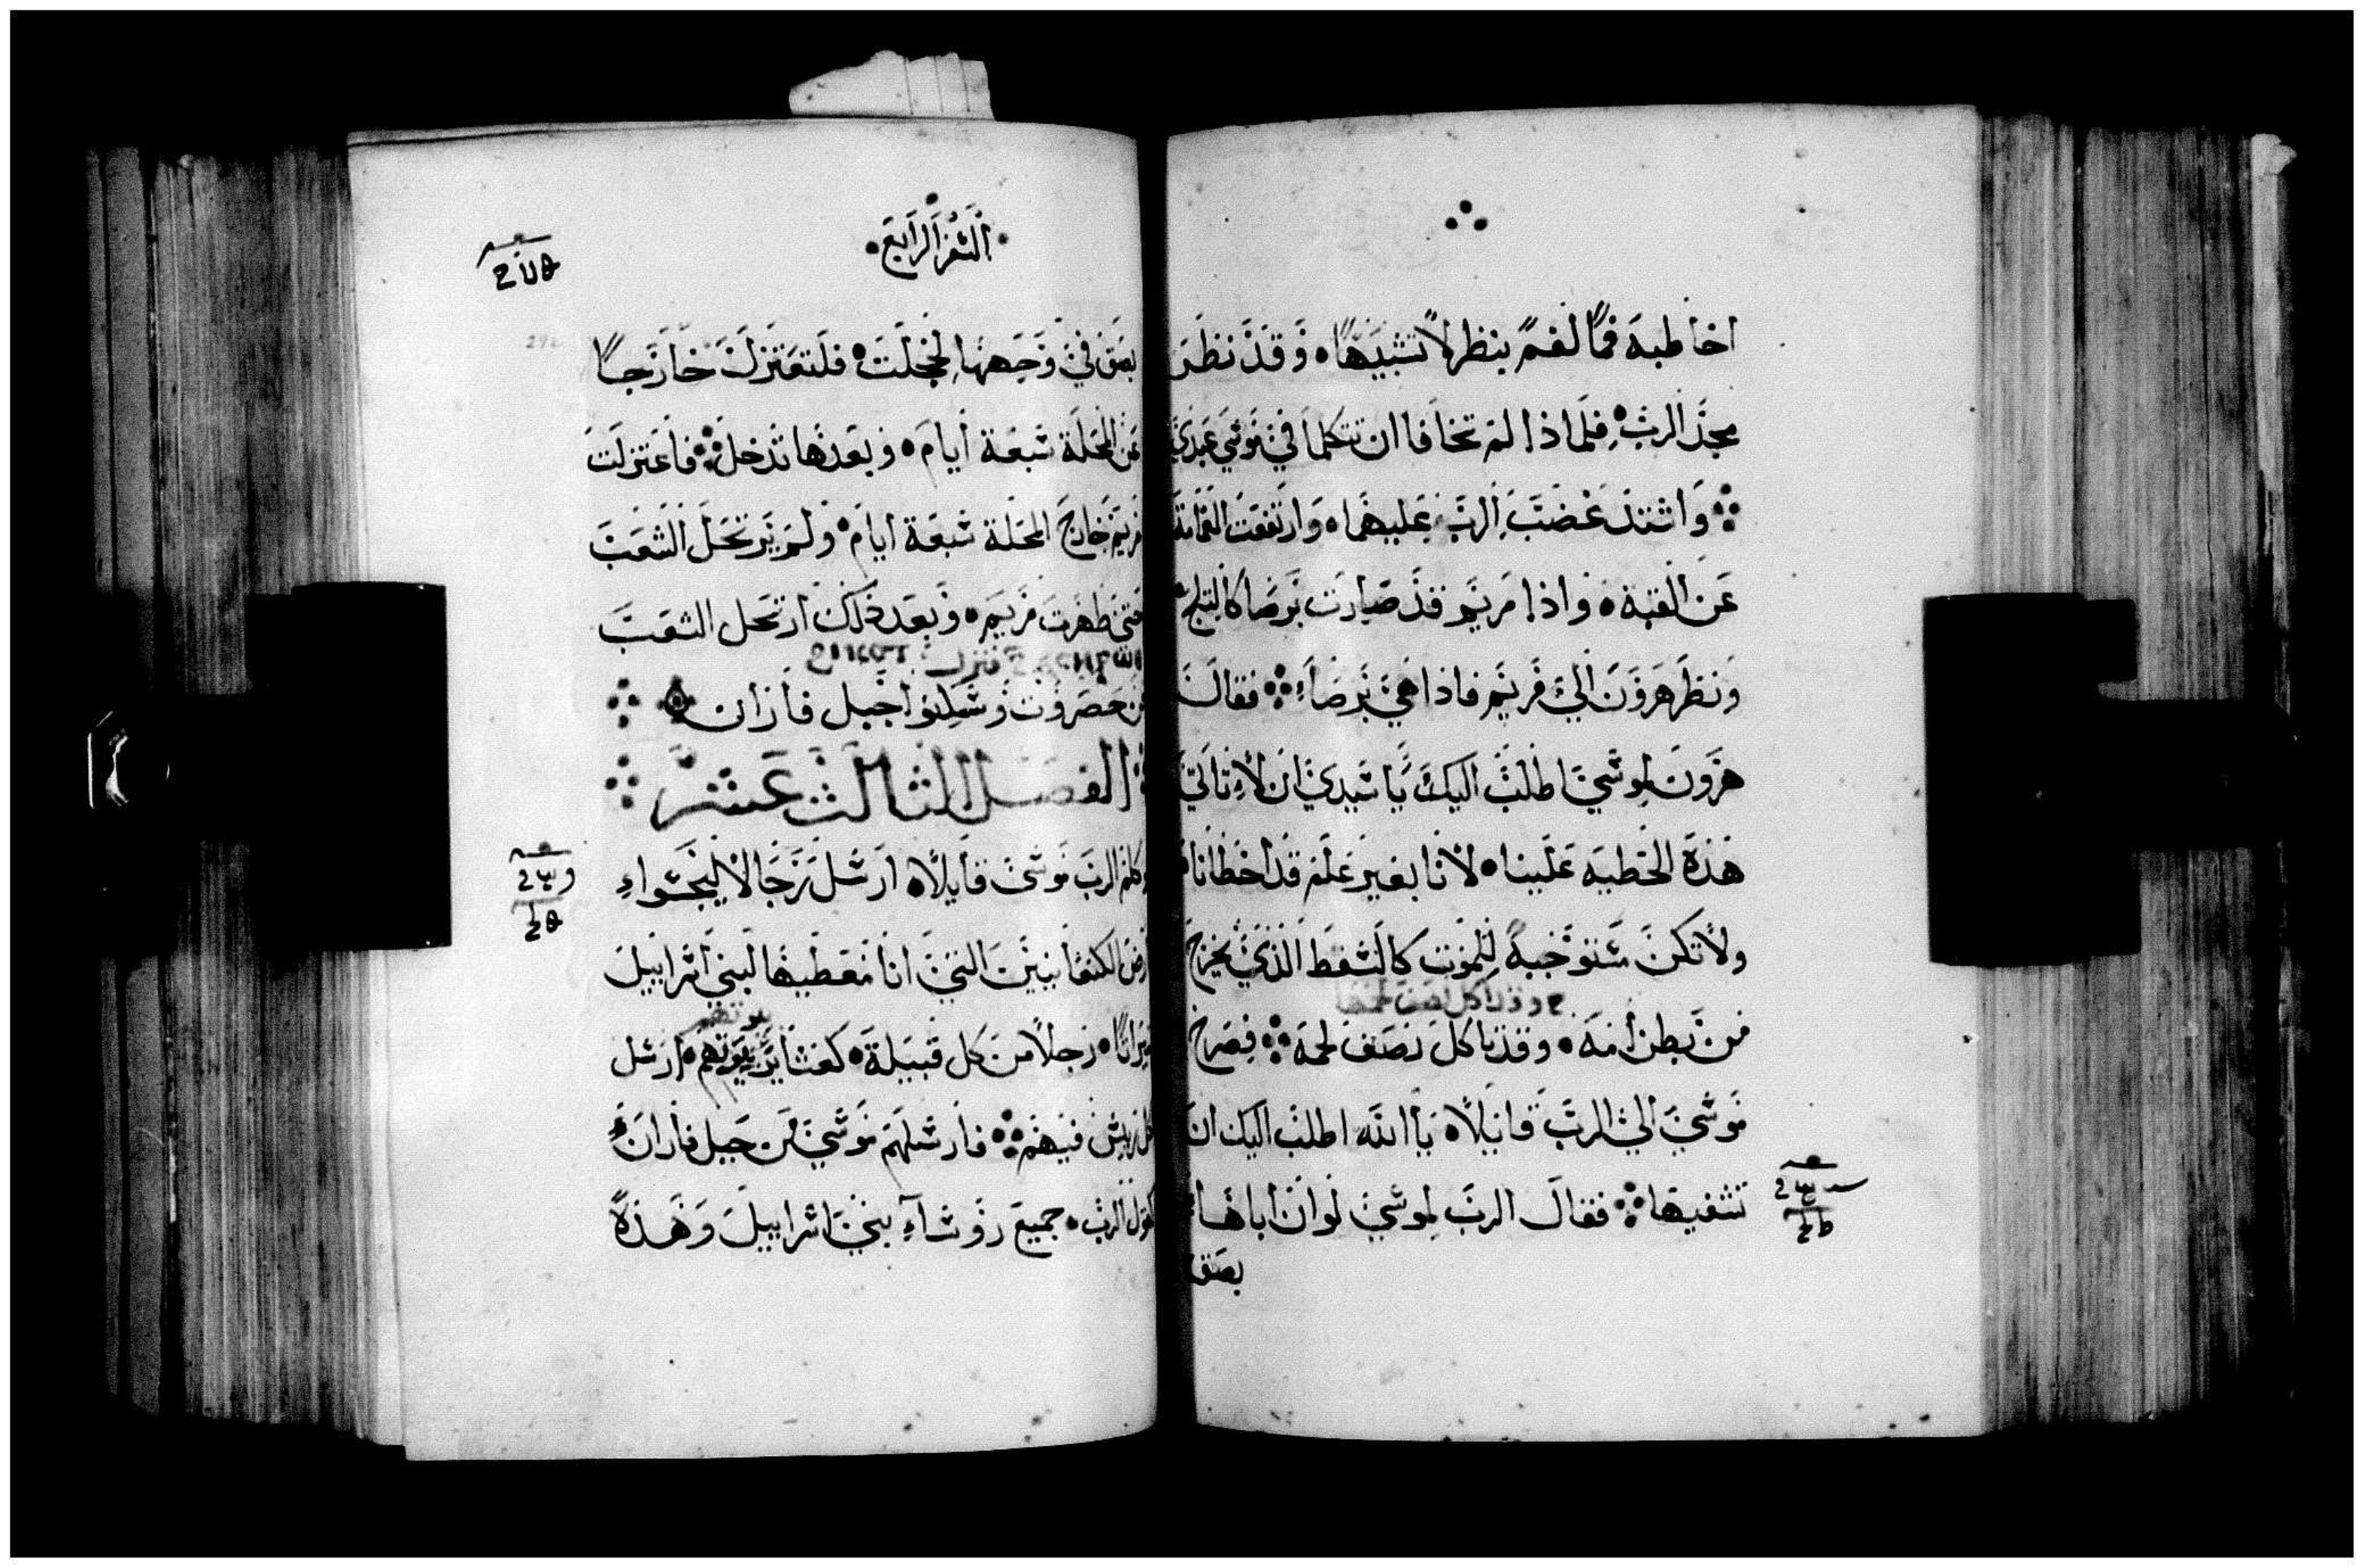 اخاطبه فمًا لفمً ينظر لا تشبيهًا • وقد نظر
مجد الرب • فلماذا لم تخافا ان تتكلما في موسي عبدي
واشتد غضب الرب عليهما • وارتفعت الغمامة
عن القبة • واذا مريم قد صارت برصا كالثلج •
ونظر هرون الي مريم فاذا هي برصاء فقال
هرون لموسي اطلب اليك يا سيدي ان لا تاتي
هذه الخطيه علينا • لانا بغير علم قد اخطانا
ولا تكن مستوجبة للموت كالسقط الذي يخرج
من بطن امه • وقد ياكل نصف لحمه فصرخ
موسي الي الرب قايلاً • يا الله اطلب اليك ان
تشفيها فقال الرب لموسي لو ان اباها
بصق
السفر الرابع
بصق في وجهها لخجلت • فلتعتزل خارجا
عن المحلة سبعة ايام • وبعدها تدخل فاعتزلت
مريم خارج المحلة سبعة ايام • ولم يرتحل الشعب
حتي طهرت مريم • وبعد ذلك ارتحل الشعب
من حصروت وسكنوا جبل فاران
الفصل الثالث عشر
وكلم الرب موسي قايلاً • ارسل رجالا ليجسوا
ارض الكنعانيين التي انا معطيها لبني اسراييل
ميراثا • رجلاً من كل قبيلة • كعشاير بيوتهم • ارسل
كل رييس فيهم فارسلهم موسي من جبل فاران
كقول الرب • جميع روساء بني اسراييل وهذه